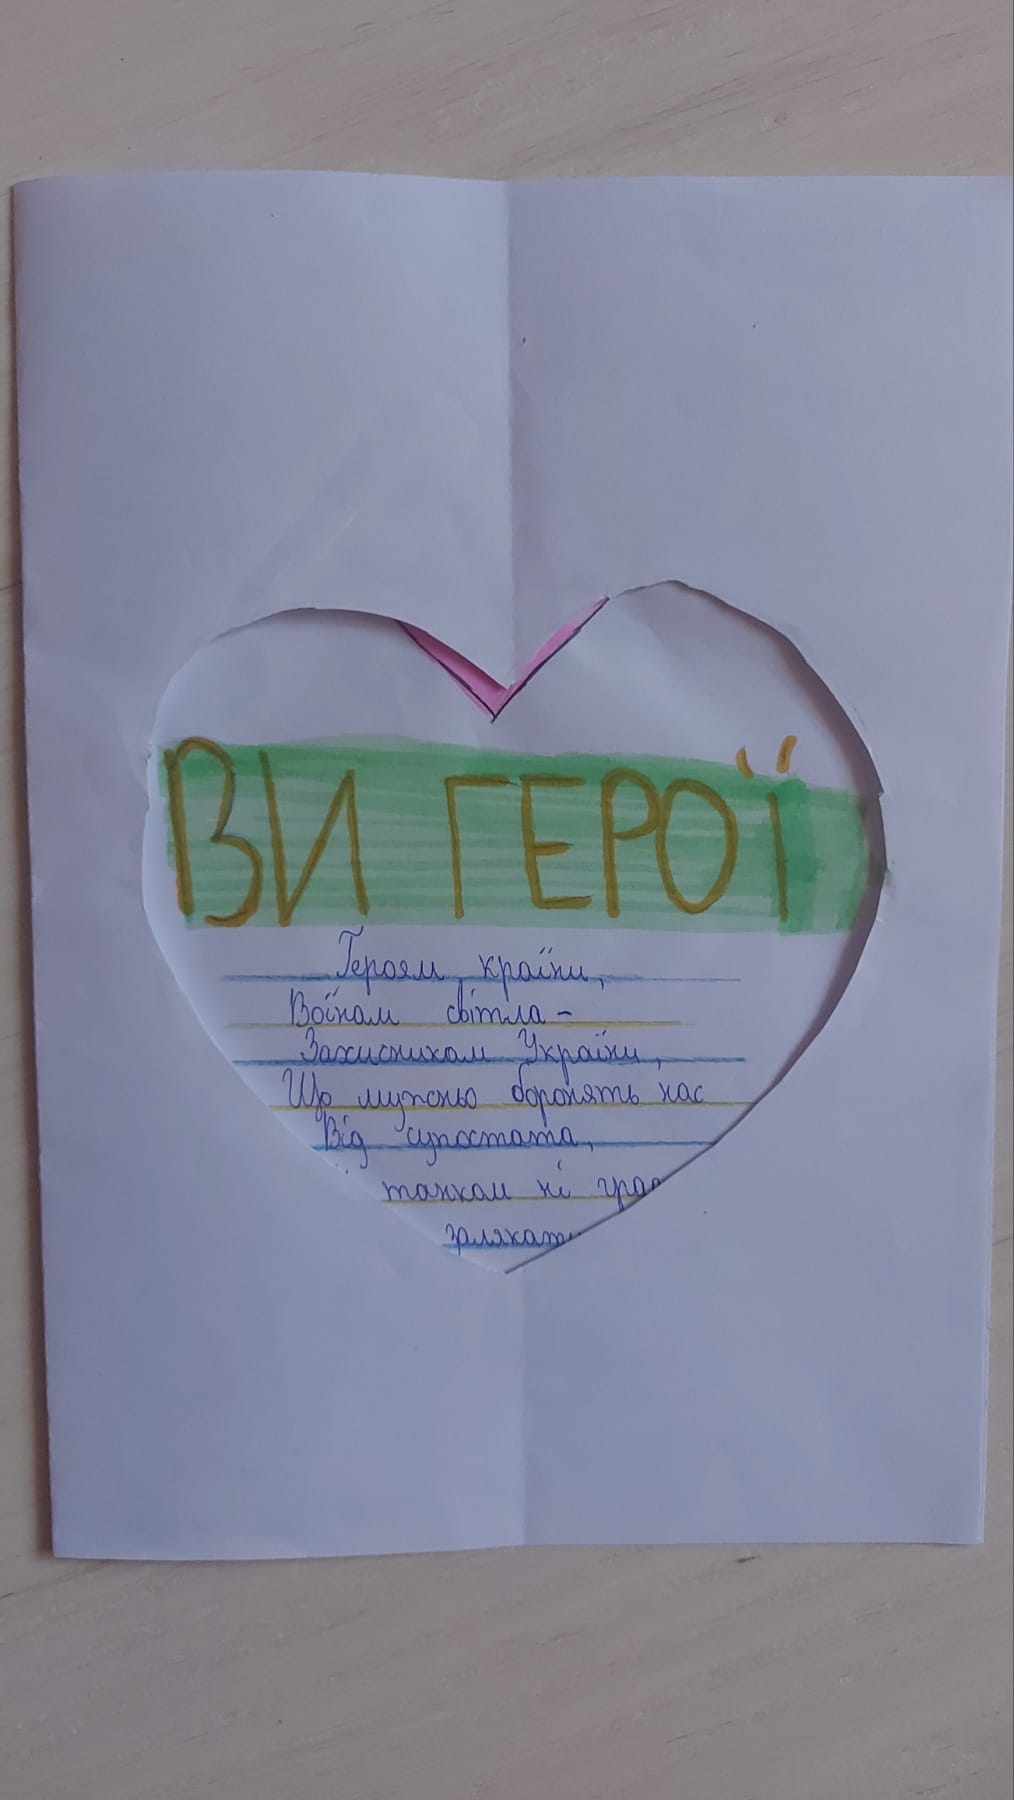 ВИ ГЕРОЇ
Героям країни,
Воїнам світла -
Захисникам України,
Що мужньо боронять нас
Від супостата,
танкам ні град
залякати